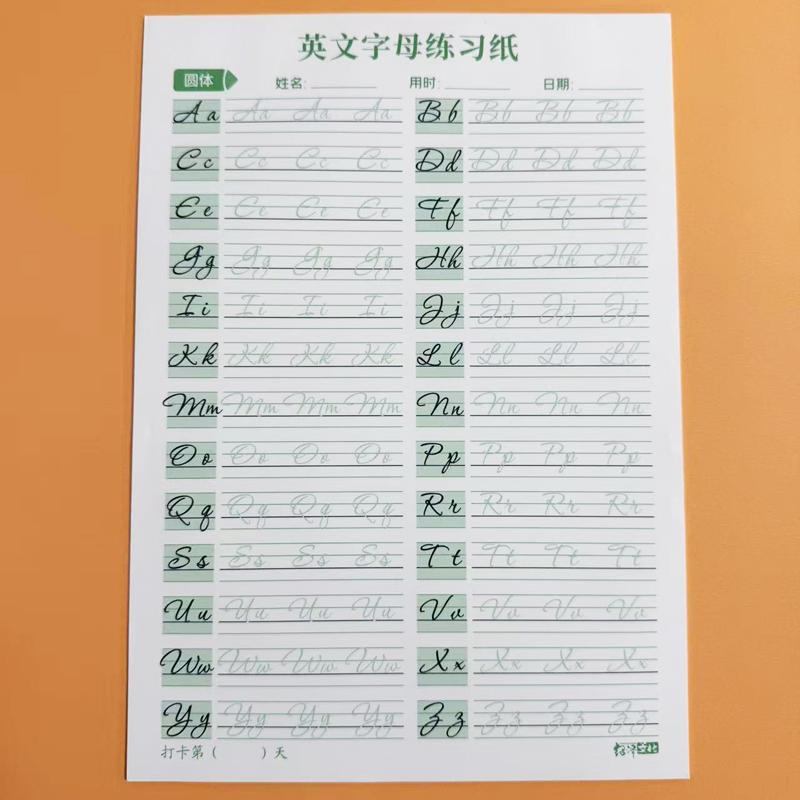 英文字母练习纸
圆体 姓名: 用时: 日期:
Aa Aa Aa Aa Bb Bb Bb Bb
Cc Cc Cc Cc Dd Dd Dd Dd
Ee Ee Ee Ee Ff Ff Ff Ff
Gg Gg Gg Gg Hh Hh Hh Hh
Ii Ii Ii Ii Jj Jj Jj Jj
Kk Kk Kk Kk Ll Ll Ll Ll
Mm Mm Mm Mm Nn Nn Nn Nn
Oo Oo Oo Oo Pp Pp Pp Pp
Qq Qq Qq Qq Rr Rr Rr Rr
Ss Ss Ss Ss Tt Tt Tt Tt
Uu Uu Uu Uu Vv Vv Vv Vv
Ww Ww Ww Ww Xx Xx Xx Xx
Yy Yy Yy Yy Zz Zz Zz Zz
打卡第( )天